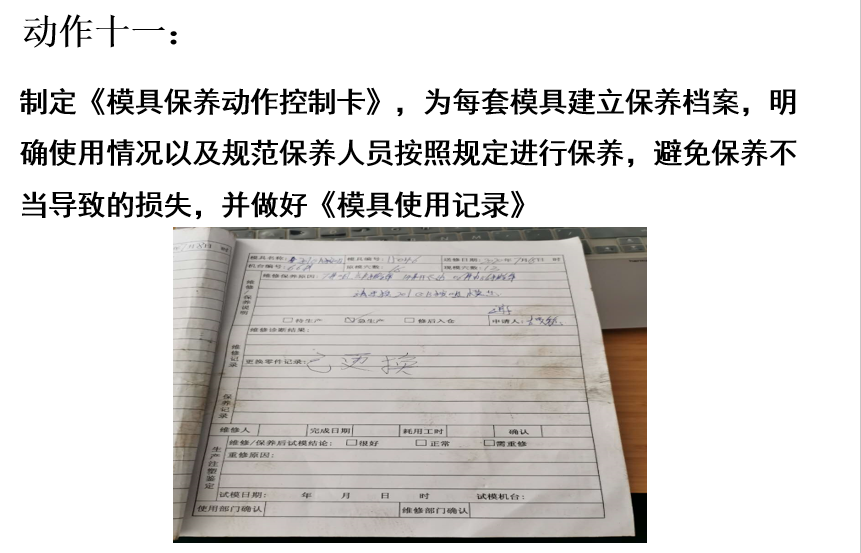 动作十一：
制定《模具保养动作控制卡》，为每套模具建立保养档案，明
确使用情况以及规范保养人员按照规定进行保养，避免保养不
当导致的损失，并做好《模具使用记录》
模具名称： 模具编号： 送修日期： 年 月 日 时
机台编号： 原模穴数： 现模穴数：
维修/保养说明
维修保养原因：
□待生产 急生产 □修后入仓 申请人：
维修诊断结果：
维修记录
更换零件记录：已更换
保养记录
维修人 完成日期 耗用工时 确认
生产注塑鉴定
维修/保养后试模结论： □很好 □正常 □需重修
重修原因：
试模日期： 年 月 日 时 试模机台：
使用部门确认 维修部门确认